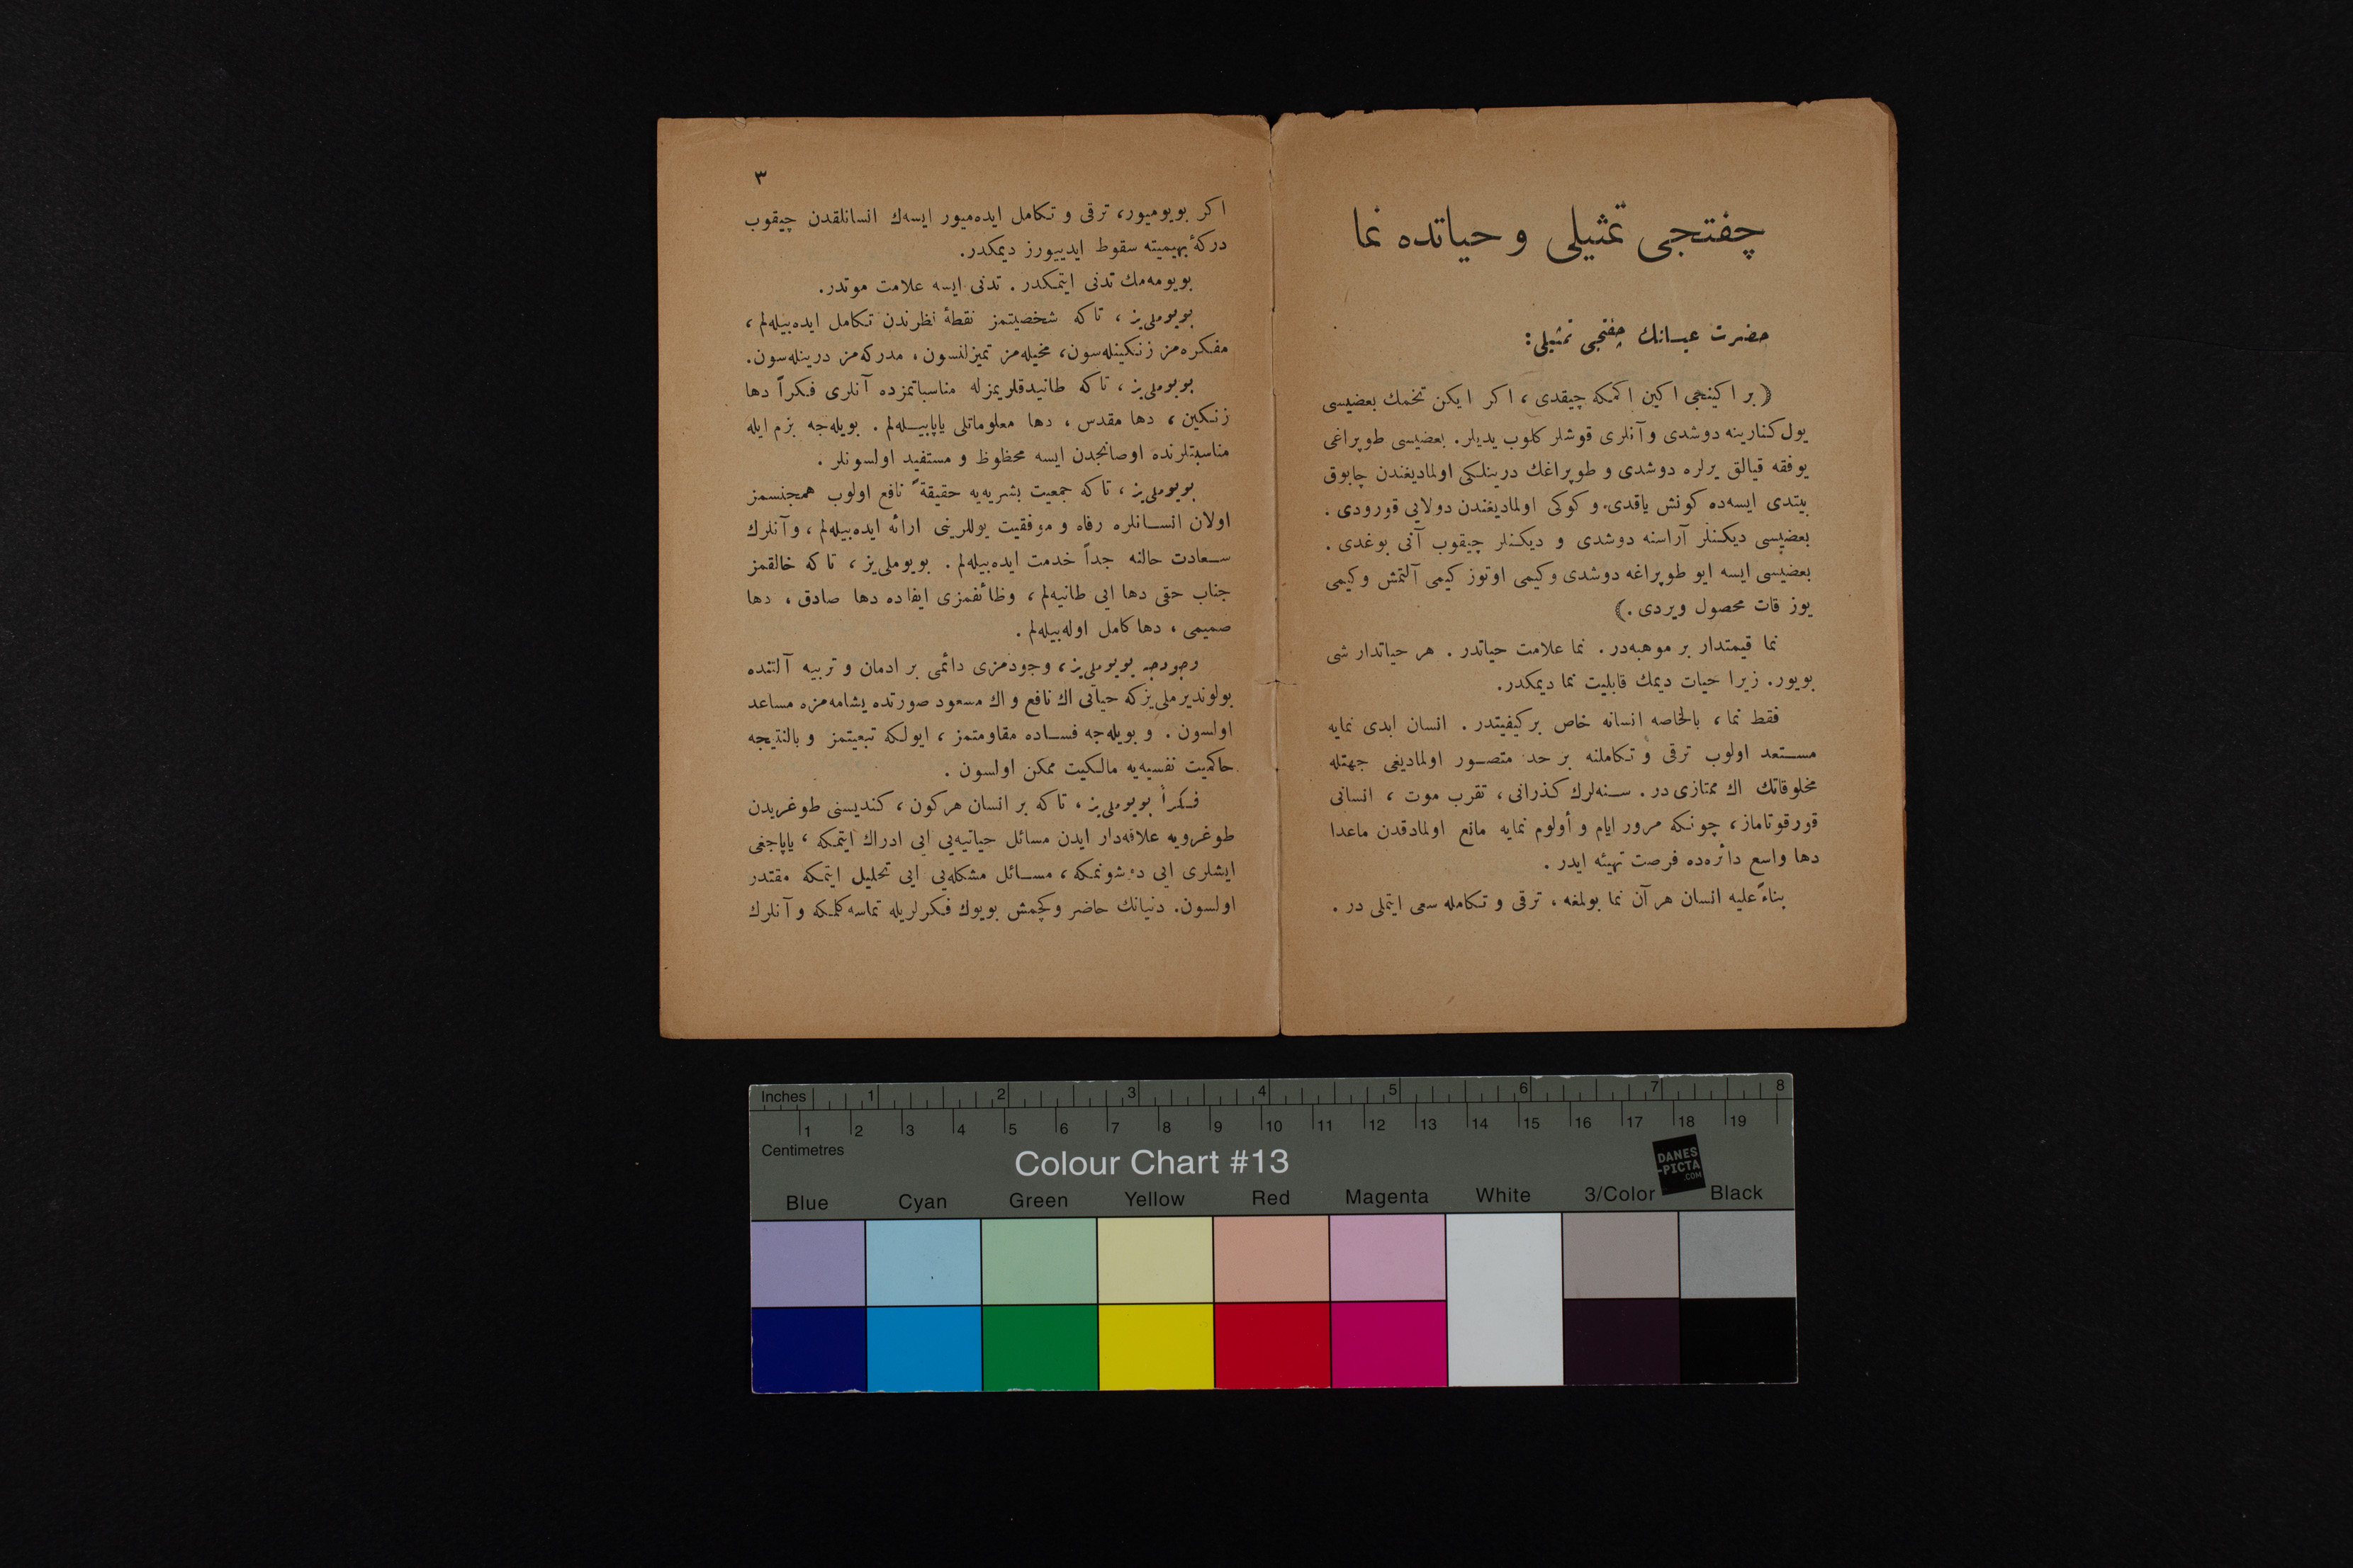 چفتجی تمثیلی و حیاتده نما
حضرت عیسانك چفتجی تمثیلی:
(بر اکینجی اکین اکمکه چیقدی، اکر ایکن تخمك بعضیسی
یول کنارینه دوشدی و آنلری قوشلر کلوب یدیلر. بعضیسی طوپراغی
یوفقه قیالق یرلره دوشدی و طوپراغك درینلکی اولمادیغندن چابوق
بیتدی ایسه‌ده کونش یاقدی و کوکی اولمادیغندن دولایی قورودی.
بعضیسی دیکنلر آراسنه دوشدی و دیکنلر چیقوب آنی بوغدی.
بعضیسی ایسه ایو طوپراغه دوشدی و کیمی اوتوز کیمی آلتمش و کیمی
یوز قات محصول ویردی.)
نما قیمتدار بر موهبه‌در. نما علامت حیاتدر. هر حیاتدار شی
بویور. زیرا حیات دیمك قابلیت نما دیمکدر.
فقط نما، بالخاصه انسانه خاص بر کیفیتدر. انسان ابدی نمایه
مستعد اولوب ترقی و تکاملنه بر حد متصور اولمادیغی جهتله
مخلوقاتك اك ممتازی در. سنه‌لرك کذرانی، تقرب موت، انسانی
قورقوتاماز، چونکه مرور ایام و أولوم نمایه مانع اولمادقدن ماعدا
دها واسع دائره‌ده فرصت تهیئه ایدر.
بناءً علیه انسان هر آن نما بولمغه، ترقی و تکامله سعی ایتملی در.
٣
اکر بویومیور، ترقی و تکامل ایده‌میور ایسه‌ك انسانلقدن چیقوب
درکهٔ بهیمیته سقوط ایدییورز دیمکدر.
بویومه‌مك تدنی ایتمکدر. تدنی ایسه علامت موتدر.
بویوملی‌یز، تاکه شخصیتمز نقطهٔ نظرندن تکامل ایده‌بیله‌لم،
مفکره‌مز زنکینله‌سون، مخیله‌مز تمیزلنسون، مدرکه‌مز درینله‌سون.
بویوملی‌یز، تاکه طانیدقلریمزله مناسباتمزده آنلری فکراً دها
زنکین، دها مقدس، دها معلوماتلی یاپابیله‌لم. بویله‌جه بزم ایله
مناسبتلرنده اوصانجدن ایسه محظوظ و مستفید اولسونلر.
بویوملی‌یز، تاکه جمعیت بشریه‌یه حقیقةً نافع اولوب همجنسمز
اولان انسانلره رفاه و موفقیت یوللرینی ارائه ایده‌بیله‌لم، و آنلرك
سعادت حالنه جداً خدمت ایده‌بیله‌لم. بویوملی‌یز، تاکه خالقمز
جناب حقی دها ایی طانیه‌لم، وظائفمزی ایفاده دها صادق، دها
صمیمی، دها کامل اوله‌بیله‌لم.
وجودجه بویوملی‌یز، وجودمزی دائمی بر ادمان و تربیه آلتنده
بولوندیرملی‌یز که حیاتی اك نافع و اك مسعود صورتده یشامه‌مزه مساعد
اولسون. و بویله‌جه فساده مقاومتمز، ایولکه تبعیتمز و بالنتیجه
حاکمیت نفسیه‌یه مالکیت ممکن اولسون.
فکراً بویوملی‌یز، تاکه بر انسان هرکون، کندیسنی طوغریدن
طوغرویه علاقه‌دار ایدن مسائل حیاتیه‌یی ایی ادراك ایتمکه، یاپاجغی
ایشلری ایی دوشونمکه، مسائل مشکله‌یی ایی تحلیل ایتمکه مقتدر
اولسون. دنیانك حاضر و کچمش بویوك فکرلریله تماسه کلمکه و آنلرك
Inches 1 2 3 4 5 6 7 8
1 2 3 4 5 6 7 8 9 10 11 12 13 14 15 16 17 18 19
Centimetres
Colour Chart #13
DANES
-PICTA
.COM
Blue Cyan Green Yellow Red Magenta White 3/Color Black